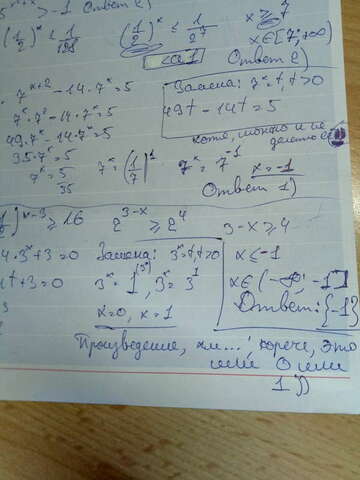 > -1 Ответ 2)
(1/2)^x ≤ 1/128 (1/2)^x ≤ 1/2^7 x ≥ 7
x∈[7;+∞)
Ответ 2)
7^(x+2) - 14·7^x = 5 Замена: 7^x = t, t>0
7^x·7^2 - 14·7^x = 5 49t - 14t = 5
49·7^x - 14·7^x = 5 хотя, можно и не
35·7^x = 5
7^x = 5/35 7^x = (1/7)^1 7^x = 7^-1 x = -1
Ответ 1)
)^x-3 ≥ 16 2^(3-x) ≥ 2^4 3-x ≥ 4
4·3^x + 3 = 0 Замена: 3^x = t, t>0 x < -1
4t + 3 = 0 3^x = 1 (3^0), 3^x = 3^1 x∈(-∞; -1]
x=0, x=1 Ответ: {-1}
Произведение, хм...; короче, это
или 0 или
1))